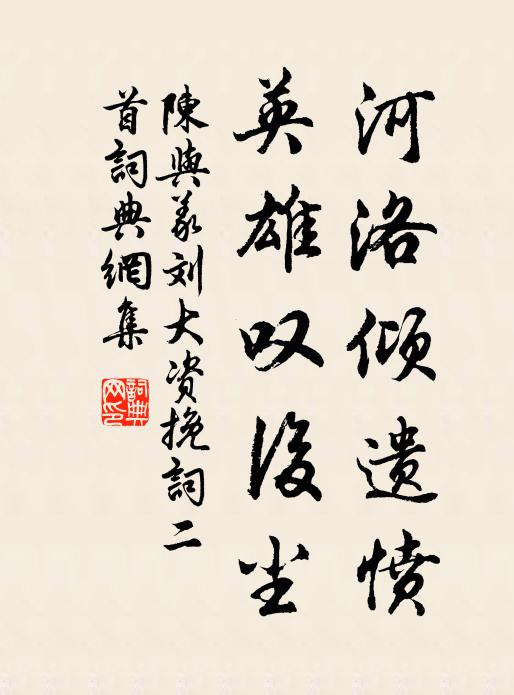 河洛倾遗愤
英雄叹後尘
陳與義刘大资挽詞二
首詞典網集
詞典网印